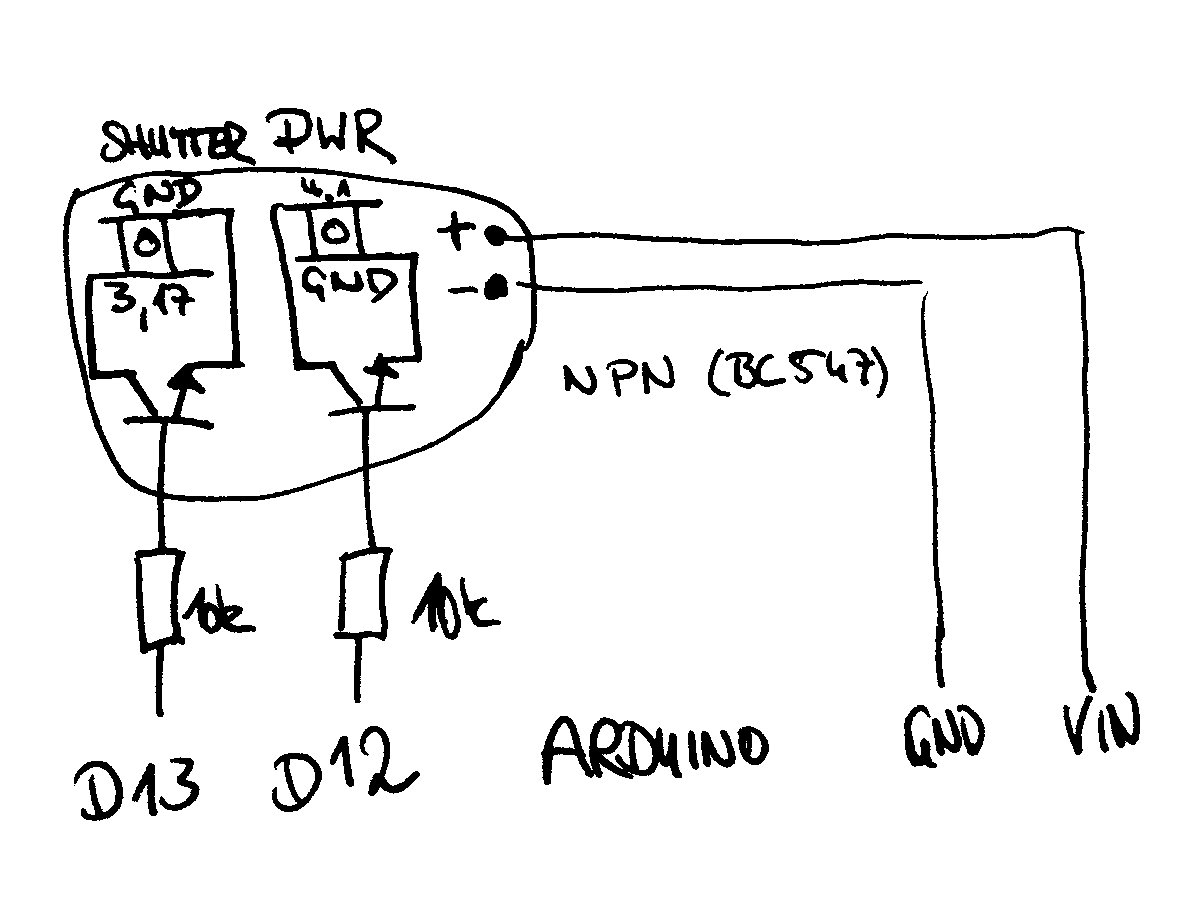 SHUTTER PWR
GND
4,1
3,17
GND
+
-
NPN (BC547)
10k
10k
D13
D12
ARDUINO
GND
VIN